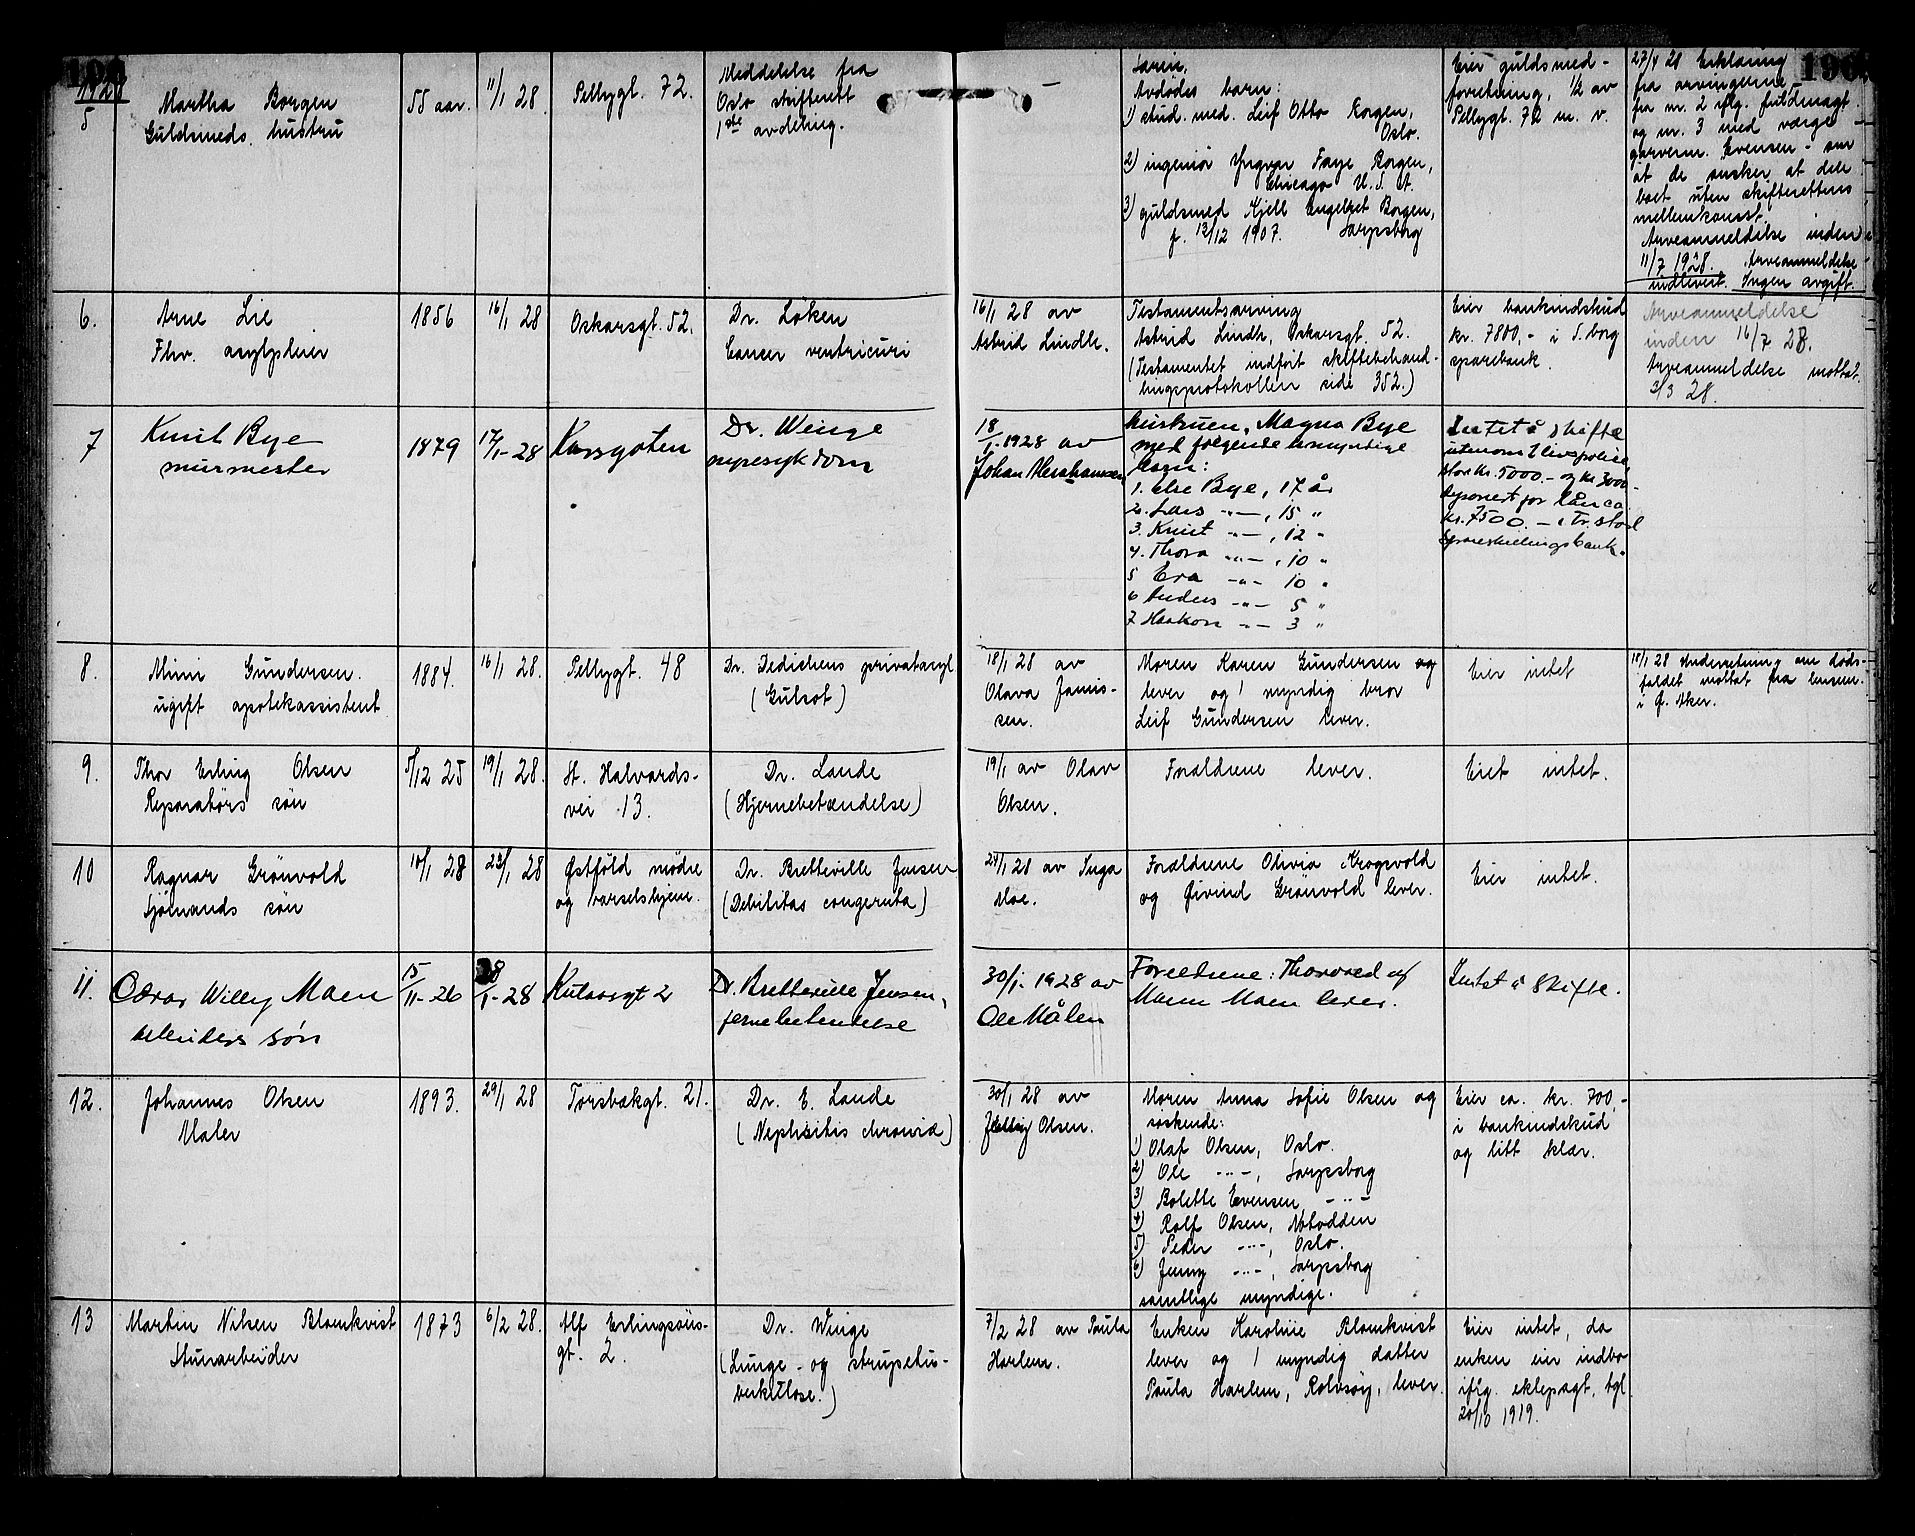 190
1928
5
Martha Borgen
Guldsmeds hustru
55 aar.
11/1 28
Pellygt. 72.
Meddelelse fra
Oslo skifterett
1ste avdeling.
—
Avdødes barn:
1) stud. med. Leif Otto Borgen,
Oslo.
2) ingeniør Yngvar Faye Borgen,
Chicago U.S.A.
3) guldsmed Kjell Engelret Borgen,
f. 12/12 1907. Sarpsborg
Eier guldsmed-
forretning, 1/2 av
Pellygt. 72 m. v.
190
27/4 28 Erklæring
fra arvingerne,
fra nr. 2 iflg. fuldmagt
og nr. 3 med værge
garverm. Evensen - om
at de ønsker at dele
boet uten skifterettens
mellemkomst.
Arveanmeldelse inden
11/7 1928. Arveanmeldelse
indlevert. Ingen avgift.
6.
Arne Lie
Fhv. asylpleier
1856
16/1 28
Oskarsgt. 52.
Dr. Löken
Cancer ventricuri
16/1 28 av
Astrid Lindh.
Testamentsarving
Astrid Lindh, Oskarsgt. 52.
(Testamentet indført skiftebehand-
lingsprotokollen side 352.)
Eier bankindskud
kr. 7800,- i S.borg
sparebank.
Arveanmeldelse
inden 16/7 28.
Arveanmeldelse mottat.
3/3 28.
7
Knut Bye
murmester
1879
17/1-28
Korsgaten
Dr. Winge
nyresykdom
18/1-1928 av
Johan Abrahamsen
hustruen, Magna Bye
med følgende umyndige
barn:
1. Else Bye, 17 år
2. Lars -"-, 15 "
3. Knut -"-, 12 "
4. Thora -"-, 10 "
5 Eva -"- 10 "
6 Anders -"- 5 "
7 Haakon -"- 3 "
Intet å skifte
utenom 2 livspoliser
stor kr. 5000.- og kr 3000-
deponert for lån ca.
kr. 7500.- i Tr.stad
Spareskillingsbank.
8.
Mimi Gundersen.
ugift apotekassistent
1884.
16/1 28.
Pellygt. 48
Dr. Dedichens privatasyl
(Gulsot)
18/1 28 av
Olava Jonis-
sen.
Moren Karen Gundersen og
lever og 1 myndig bror
Leif Gundersen lever.
Eier intet
18/1 28 Underretning om døds-
faldet mottat fra lensm.
i Ø. Aker.
9.
Thor Erling Olsen
Reparatørs søn
5/12 25
19/1 28.
St. Halvards-
vei 13.
Dr. Lande
(Hjernebetændelse)
19/1 av Olav
Olsen.
Forældrene lever.
Eiet intet.
10
Ragnar Grönvold
Sjømands søn
10/1 28
23/1 28
Østfold mødre
og barselshjem.
Dr. Bretteville Jensen
(Debilitas congenita)
24/1 28 av Inga
Moe.
Forældrene Olivia Krogsvold
og Øivind Grönvold lever.
Eier intet.
11.
Oscar Willy Moen
arbeiders søn
15/11-26
28/1-28
Kulaasgt 2
Dr. Bretteville Jensen,
jernebetendelse
30/1-1928 av
Ole Målen
Foreldrene: Thorvald og
Moen lever.
Intet å skifte.
12.
Johannes Olsen
Maler
1893.
29/1 28
Torsbakgt. 21.
Dr. E. Lande
(Nephritis chronica)
30/1 28 av
Olsen.
Moren Anna Sofie Olsen og
søskende:
1) Olaf Olsen, Oslo.
2) Ole -"-, Sarpsborg
3) Bolette Evensen, -"-
4) Rolf Olsen, Notodden
5) Peder -"-, Oslo.
6) Jenny -"-, Sarpsborg
samtlige myndige.
Eier ca. kr. 700,-
i bankindskud
og litt klær.
13
Martin Nilsen Blomkvist
Stenarbeider
1873
6/2 28.
Alf Erlingsöns-
gt. 2.
Dr. Winge
(Lunge- og strupetu-
berkulose.)
7/2 28 av Paula
Harlem.
Enken Karoline Blomkvist
lever og 1 myndig datter
Paula Harlem, Rolvsøy, lever.
Eier intet, da
enken eier indbo
iflg. ektepagt, tgl.
20/10 1919.